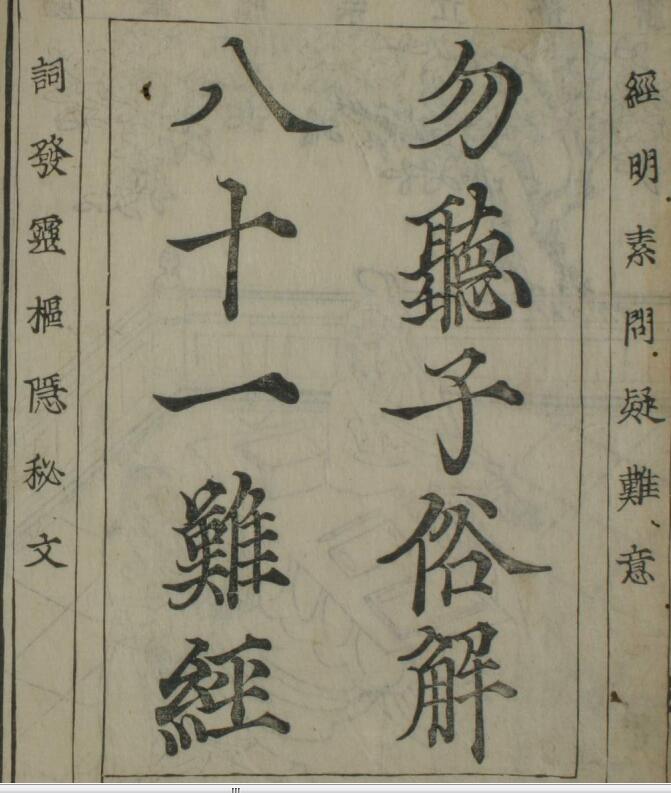 經明素問疑難意
勿聽子俗解
八十一難經
詞發靈樞隱秘文